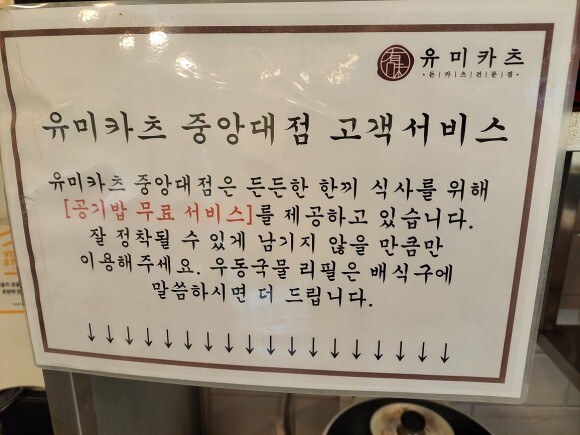 유미카츠
·돈|카|츠|전|문|점·
유미카츠 중앙대점 고객서비스
유미카츠 중앙대점은 든든한 한끼 식사를 위해
[공기밥 무료 서비스]를 제공하고 있습니다.
잘 정착될 수 있게 남기지 않을 만큼만
이용해주세요. 우동국물 리필은 배식구에
말씀하시면 더 드립니다.
↓ ↓ ↓ ↓ ↓ ↓ ↓ ↓ ↓ ↓ ↓ ↓ ↓ ↓ ↓ ↓ ↓ ↓